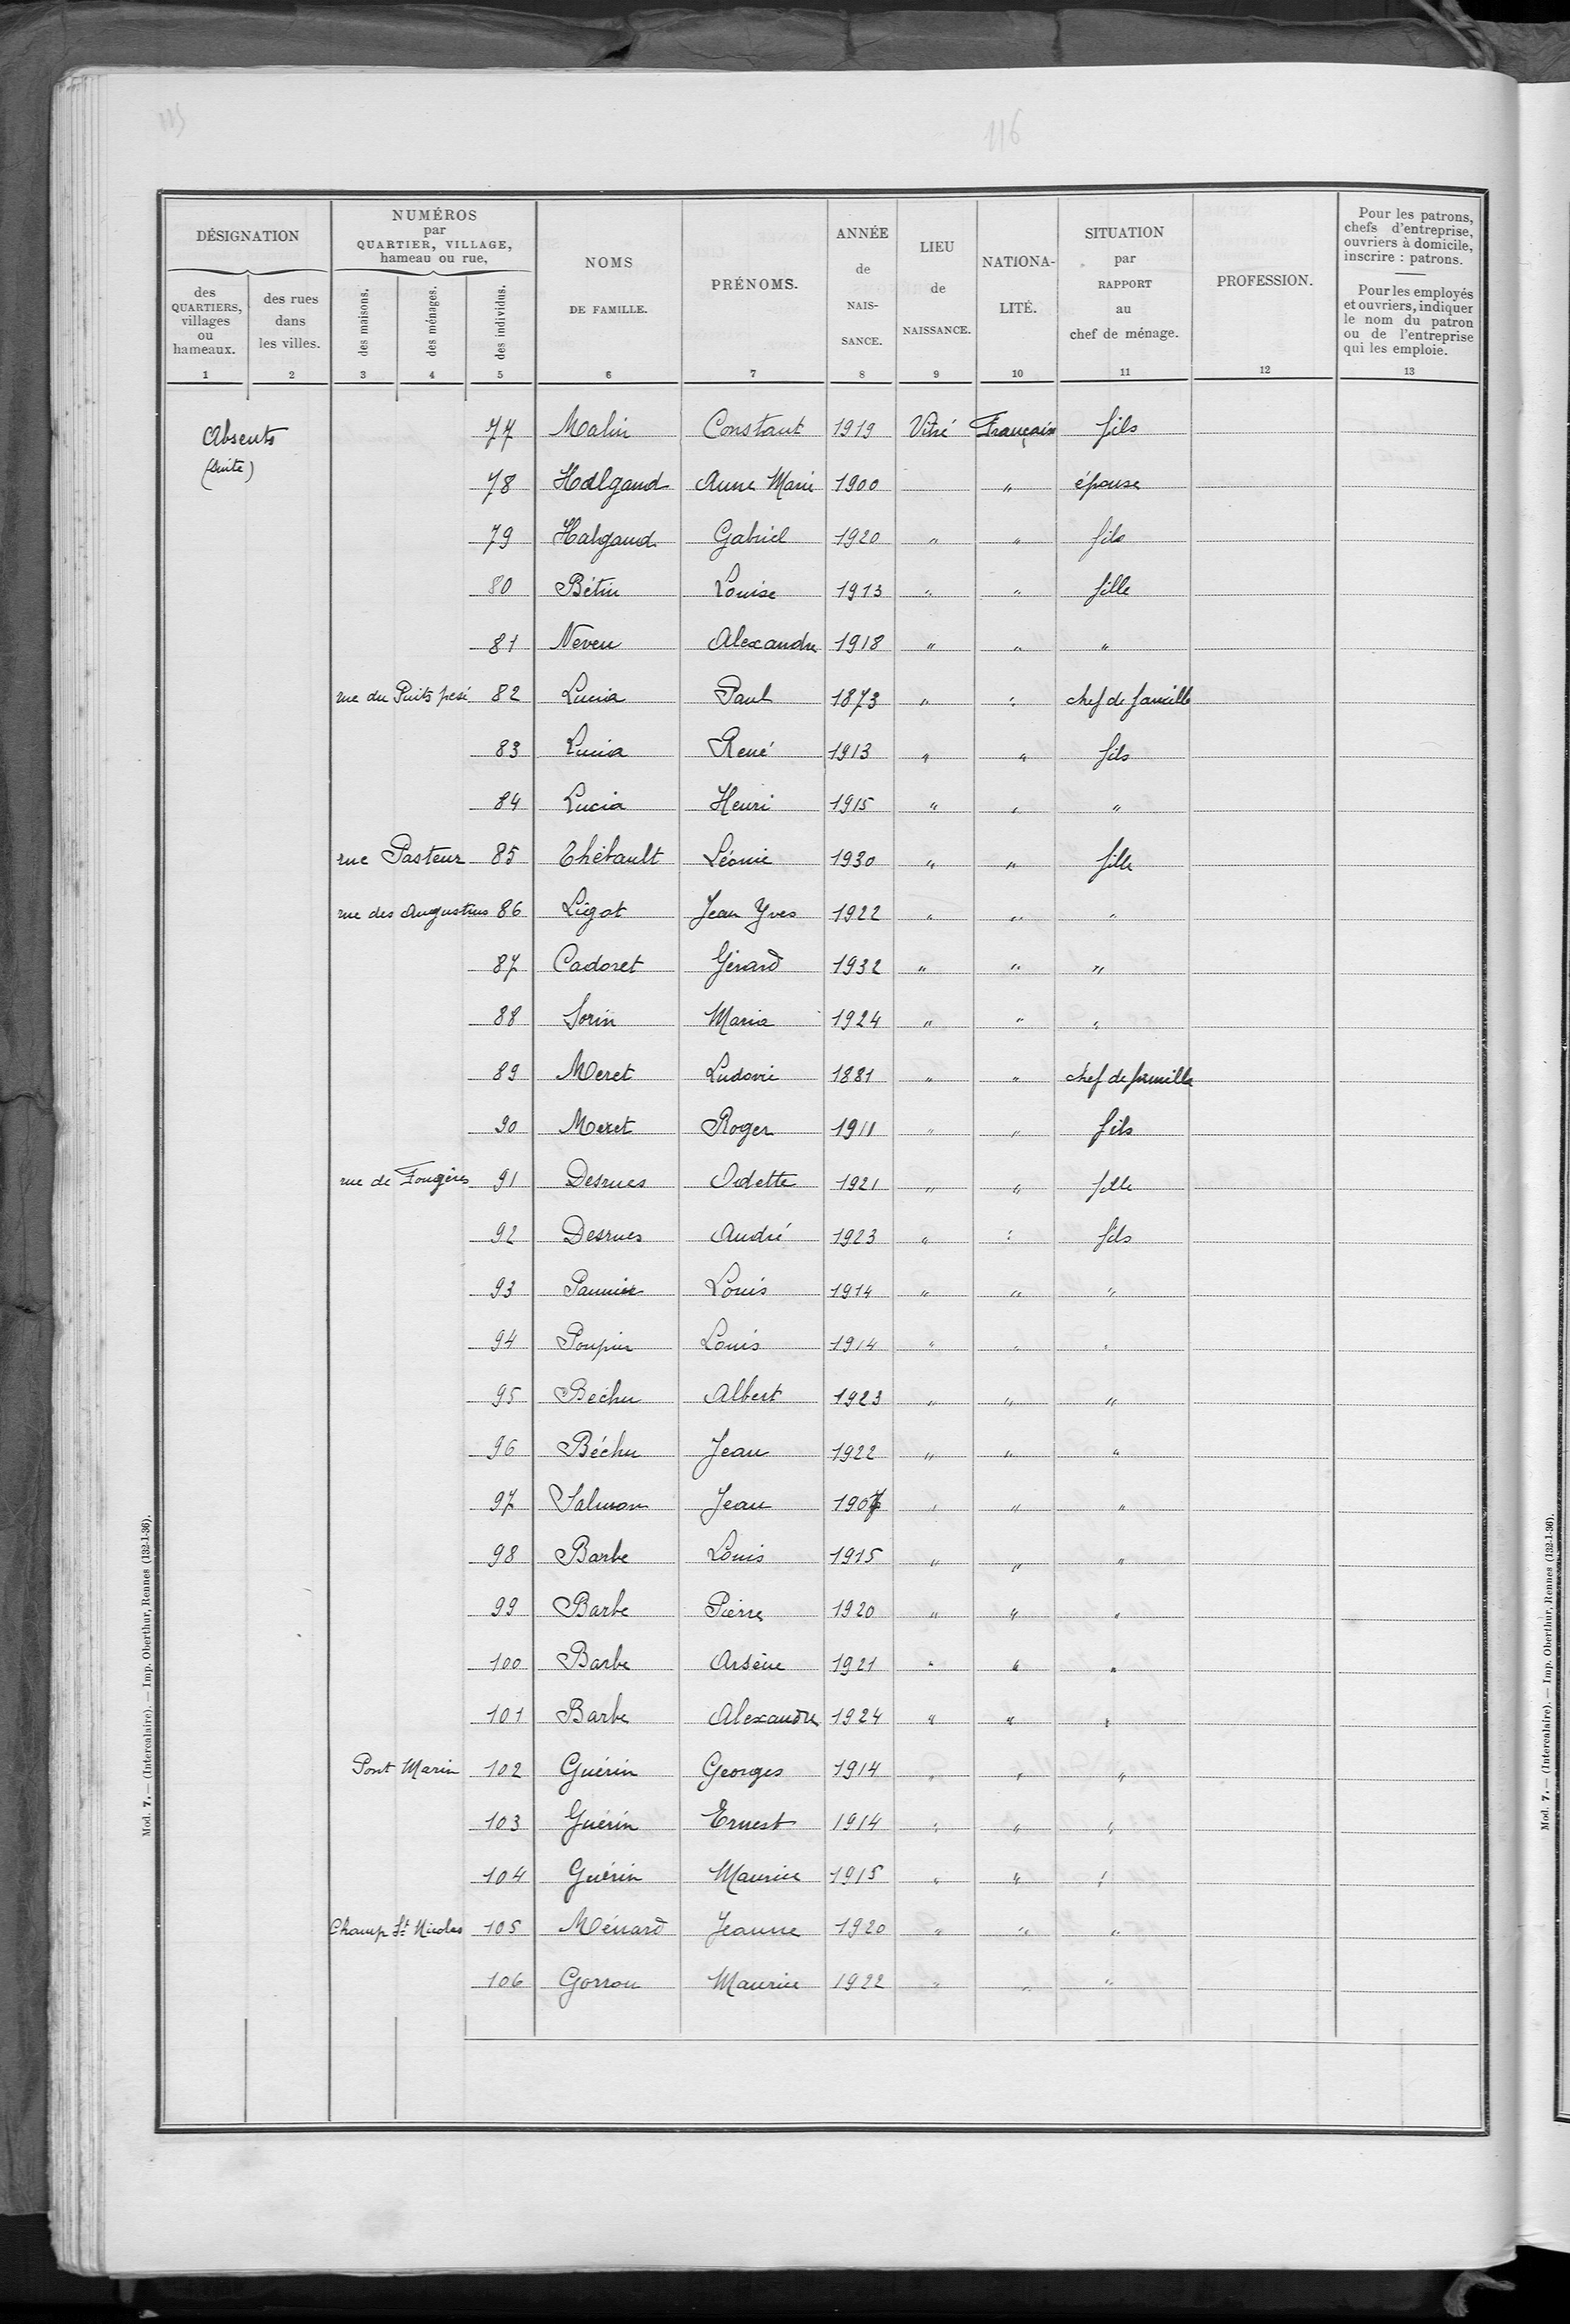 115
116
DÉSIGNATION
NUMÉROS
par
QUARTIER, VILLAGE,
hameau ou rue,
NOMS
DE FAMILLE.
PRÉNOMS.
ANNÉE
de
NAIS-
SANCE.
LIEU
de
NAISSANCE.
NATIONA-
LITÉ.
SITUATION
par
RAPPORT
au
chef de ménage.
PROFESSION.
Pour les patrons,
chefs d'entreprise,
ouvriers à domicile,
inscrire : patrons.
Pour les employés
et ouvriers, indiquer
le nom du patron
ou de l'entreprise
qui les emploie.
des
QUARTIERS,
villages
ou
hameaux.
des rues
dans
les villes.
des maisons.
des ménages.
des individus.
1 2 3 4 5 6 7 8 9 10 11 12 13
Absents 77 Malin Constant 1919 Vitré Français fils
(Suite)
78 Halgand Anne Marie 1900 " épouse
79 Halgand Gabriel 1920 " " fils
80 Bétin Louise 1913 " " fille
81 Neveu Alexandre 1918 " " "
rue du Puits pesé 82 Lucia Paul 1873 " " chef de famille
83 Lucia René 1913 " " fils
84 Lucia Henri 1915 " " "
rue Pasteur 85 Thébault Léonie 1930 " " fille
rue des Augustins 86 Ligot Jean Yves 1922 " " "
87 Cadoret Gérard 1932 " " "
88 Sorin Maria 1924 " " "
89 Meret Ludovic 1881 " " chef de famille
90 Meret Roger 1911 " " fils
rue de Fougères 91 Desrues Odette 1921 " " fille
92 Desrues André 1923 " " fils
93 Pannier Louis 1914 " " "
94 Poupin Louis 1914 " " "
95 Béchu Albert 1923 " " "
96 Béchu Jean 1922 " " "
97 Salmon Jean 1907 " " "
98 Barbe Louis 1915 " " "
99 Barbe Pierre 1920 " " "
100 Barbe Arsène 1921 " " "
101 Barbe Alexandre 1924 " " "
Pont Marin 102 Guérin Georges 1914 " " "
103 Guérin Ernest 1914 " " "
104 Guérin Maurice 1915 " " "
Champ St Nicolas 105 Ménard Jeanne 1920 " " "
106 Gorron Maurice 1922 " " "
Mod. 7. — (Intercalaire). — Imp. Oberthur, Rennes (132-1-36).
Mod. 7. — (Intercalaire). — Imp. Oberthur, Rennes (132-1-36).